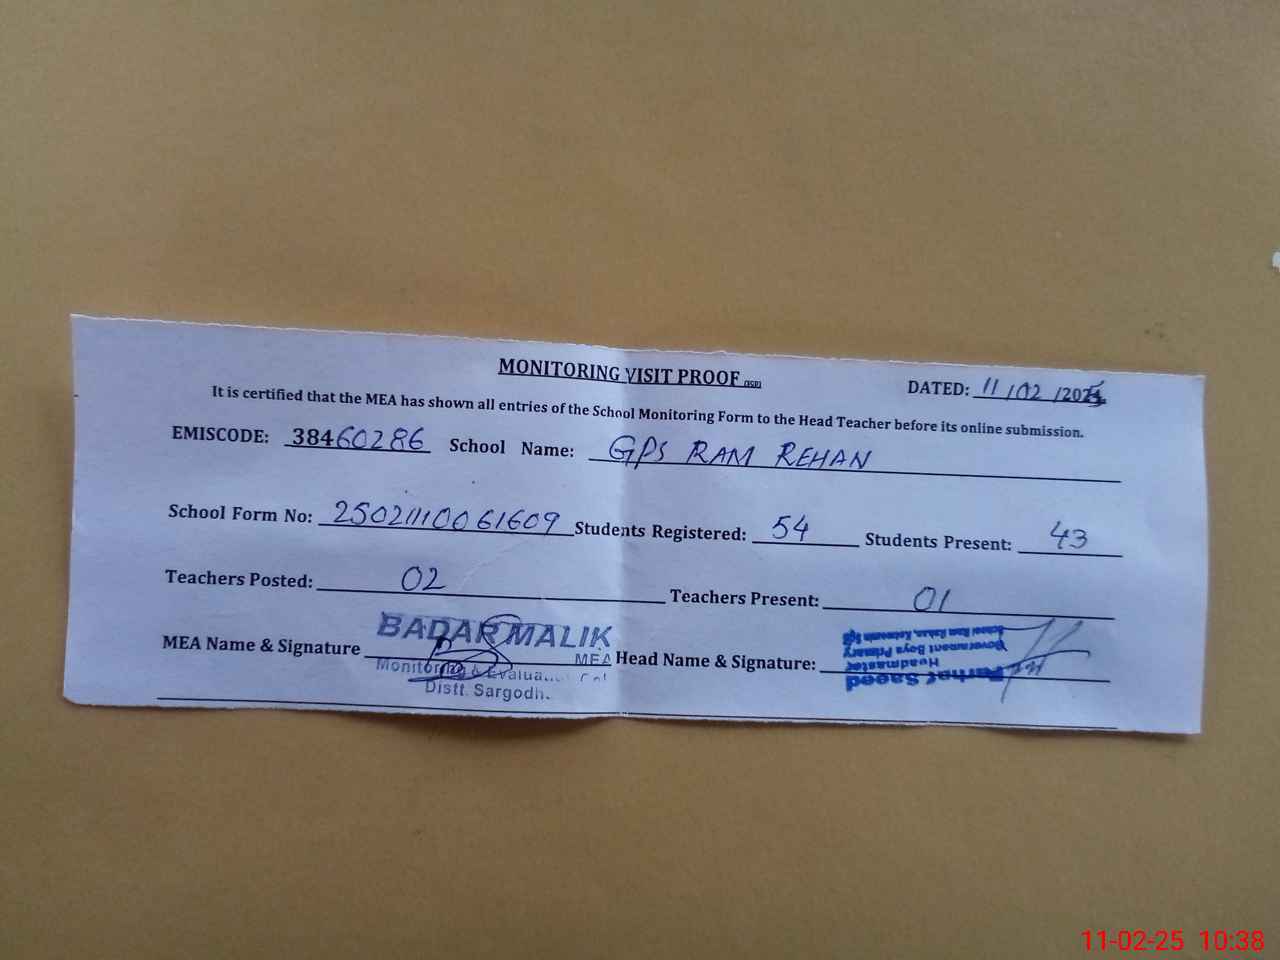 MONITORING VISIT PROOF
DATED: 11/02/2025
It is certified that the MEA has shown all entries of the School Monitoring Form to the Head Teacher before its online submission.
EMISCODE: 38460286 School Name: GPS RAM REHAN
School Form No: 25021110061609 Students Registered: 54 Students Present: 43
Teachers Posted: 02 Teachers Present: 01
MEA Name & Signature BADAR MALIK Head Name & Signature:
MEA
Monitoring & Evaluat
Distt. Sargodh.
Farhat Saeed
Headmaster
Government Boys Primary
School Ram Rehan,
11-02-25 10:38